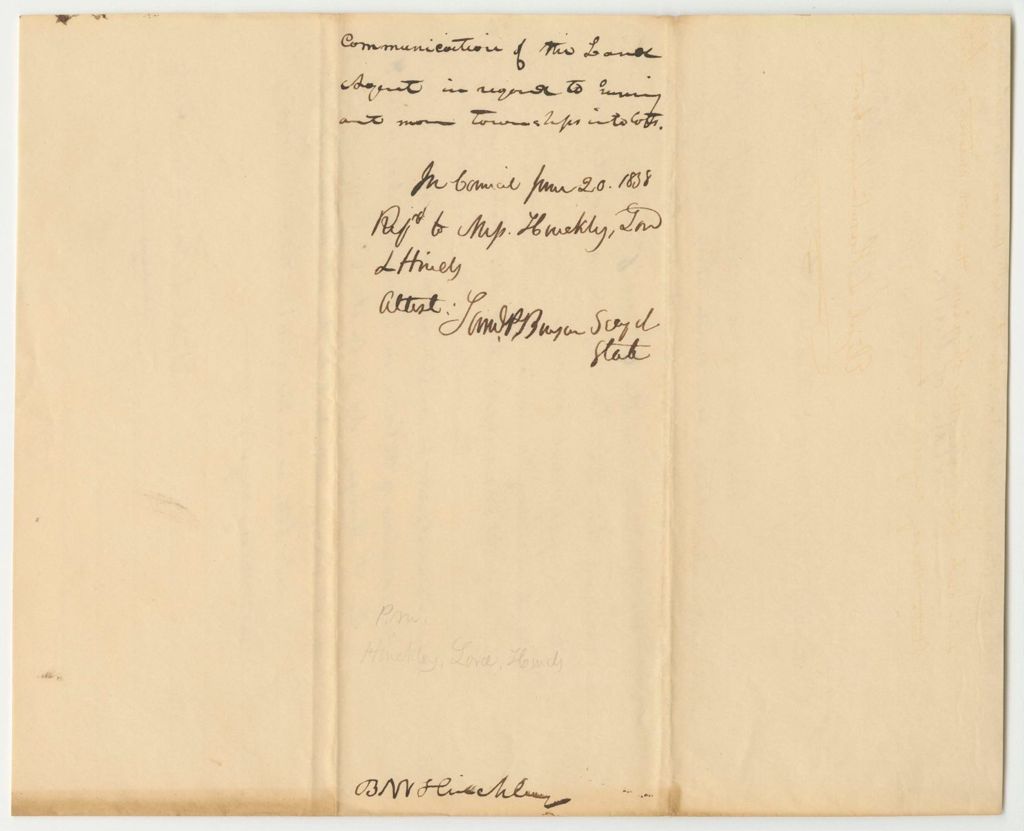 Communication of the Land
Agent in regard to running
out more townships into lots.
In Council June 20. 1838
Refd to Mess. Hinckley, Lord
& Hinds
Attest: Saml P Benson Secy of
State
P.m.
Hinckley, Lord, Hinds
B W Hinckley